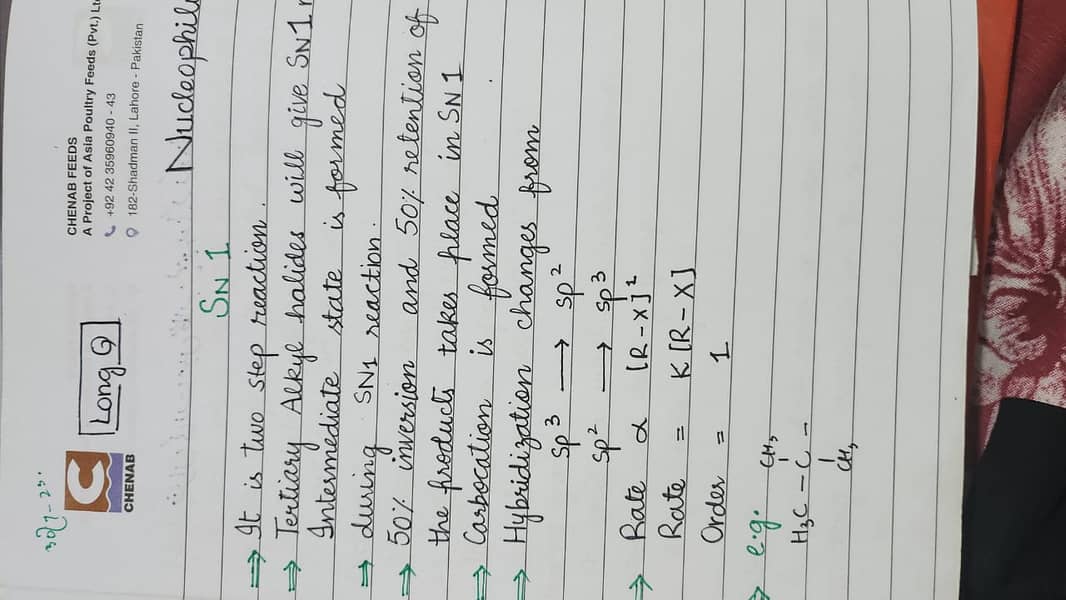 30/7-25"
Long Q
CHENAB
CHENAB FEEDS
A Project of Asia Poultry Feeds (Pvt.) Lt
+92 42 35960940 - 43
182-Shadman II, Lahore - Pakistan
Nucleophil
SN1
⇒ It is two step reaction.
⇒ Tertiary Alkyl halides will give SN1
Intermediate state is formed
⇒ during SN1 reaction.
⇒ 50% inversion and 50% retention of
the products takes place in SN1
⇒ Carbocation is formed.
⇒ Hybridization changes from
Sp³ ⟶ sp²
sp² ⟶ sp³
⇒ Rate ∝ [R-X]¹
Rate = K [R-X]
Order = 1
⇒ e.g.
CH₃
H₃C - C -
CH₃